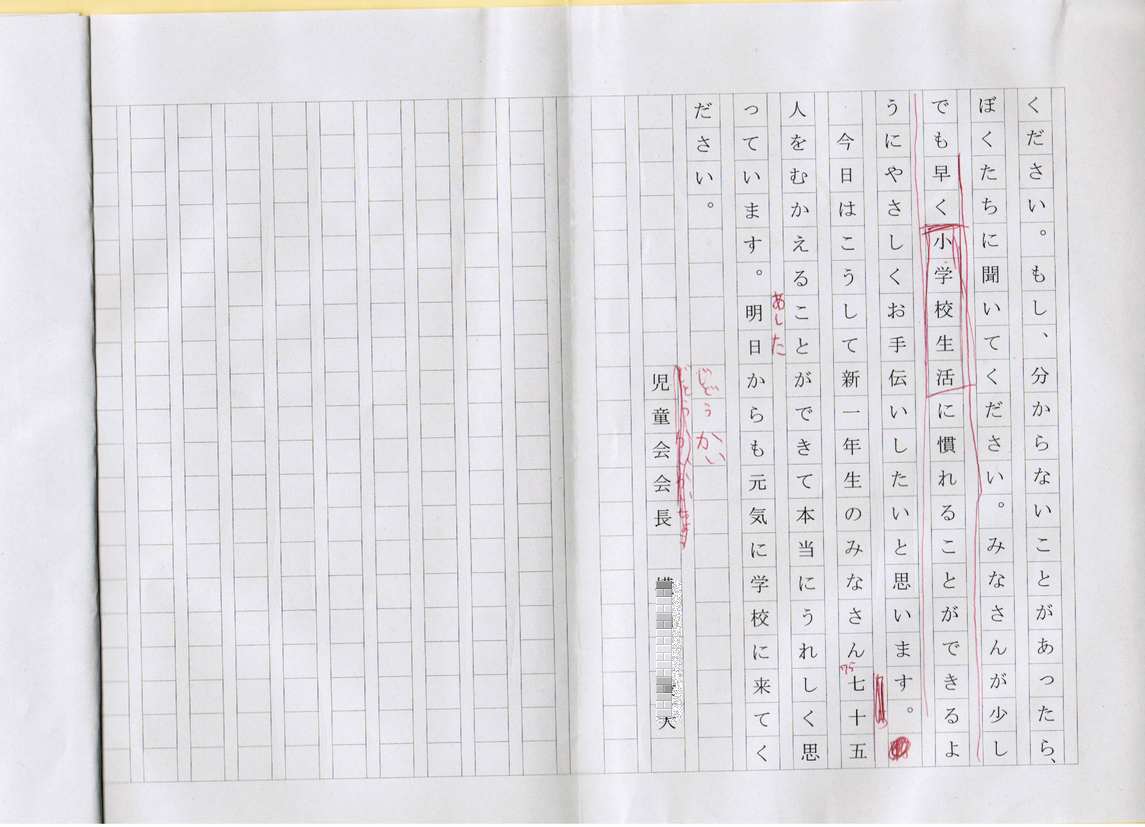 ください。もし、分からないことがあったら、
ぼくたちに聞いてください。みなさんが少し
でも早く小学校生活に慣れることができるよ
うにやさしくお手伝いしたいと思います。
今日はこうして新一年生のみなさん七十五
75
人をむかえることができて本当にうれしく思
あした
っています。明日からも元気に学校に来てく
じどうかい
ださい。
児童会会長